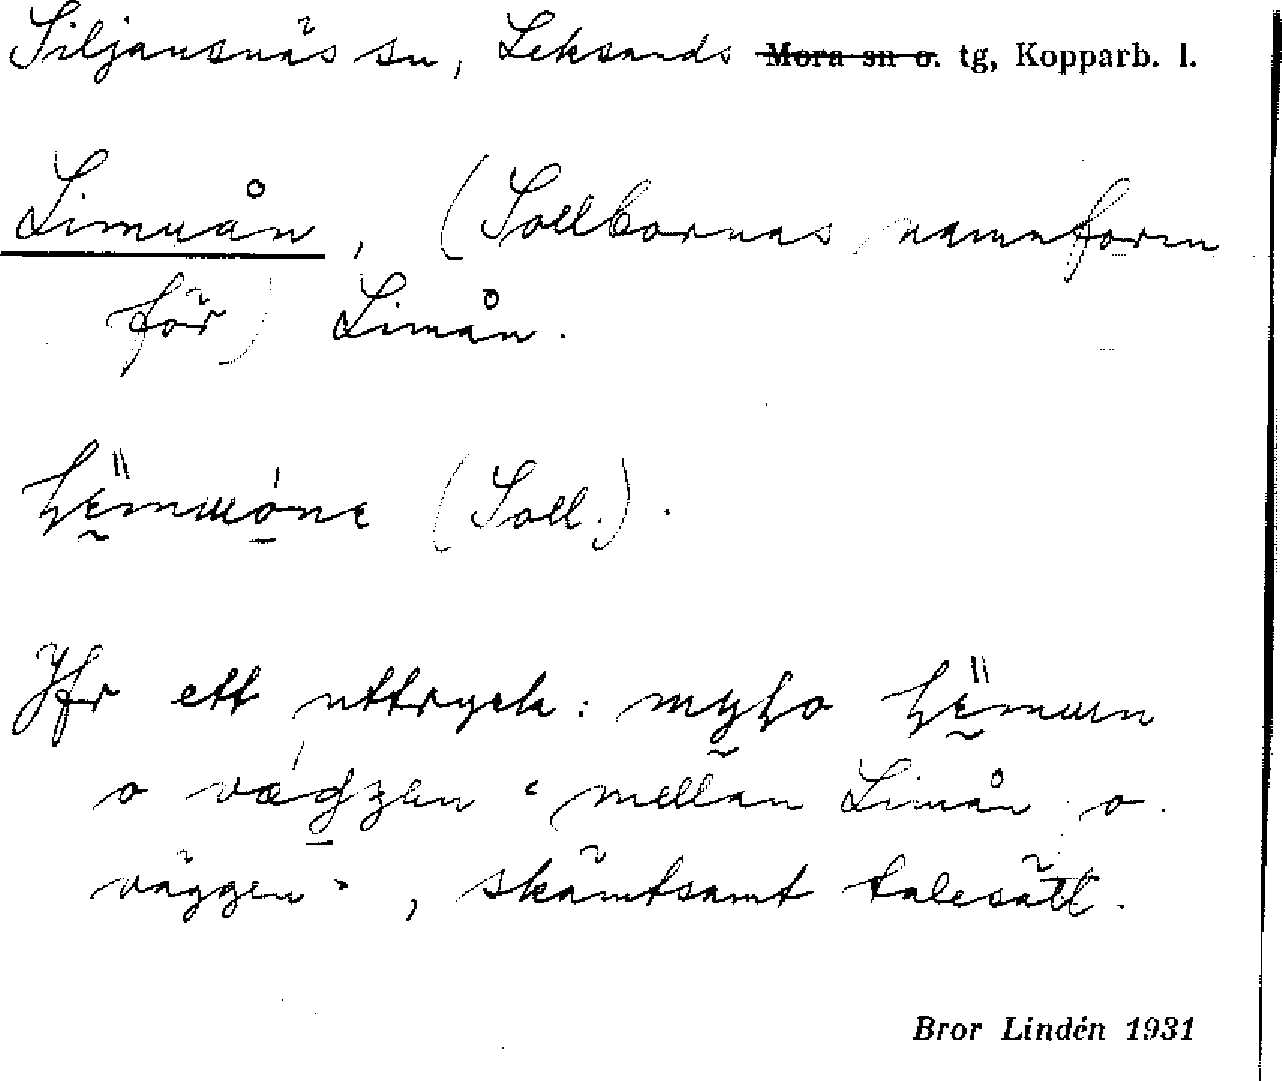 Siljansnäs sn, Leksands ~~Mora sn o.~~ tg, Kopparb. l.
Limuån, (Sollbornas namnform
för) Limån.
(Soll.).
Jfr ett uttryck:
o "mellan Limån o.
väggen", skämtsamt talesätt.
Bror Lindén 1931